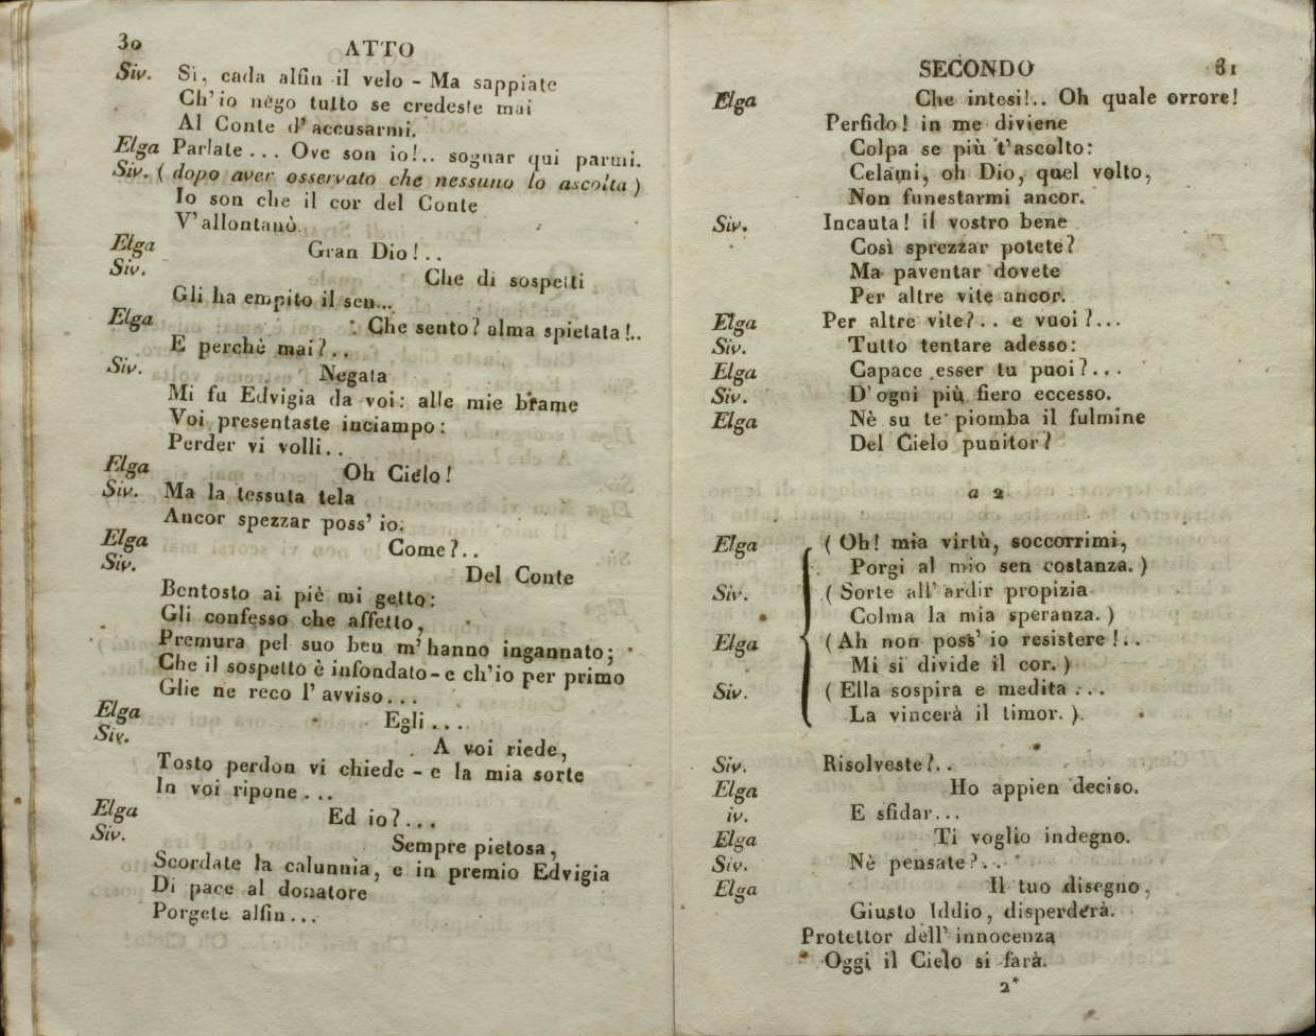 30
ATTO
Siv. Si, cada alfin il velo - Ma sappiate
Ch'io nego tutto se credeste mai
Al Conte d'accusarmi.
Elga Parlate... Ove son io!.. sognar qui parmi.
Siv. (dopo aver osservato che nessuno lo ascolta)
Io son che il cor del Conte
V'allontanò.
Elga Gran Dio!..
Siv. Che di sospetti
Gli ha empito il sen...
Elga Che sento? alma spietata!..
E perchè mai?..
Siv. Negata
Mi fu Edvigia da voi: alle mie brame
Voi presentaste inciampo:
Perder vi volli..
Elga Oh Cielo!
Siv. Ma la tessuta tela
Ancor spezzar poss' io.
Elga Come?..
Siv. Del Conte
Bentosto ai piè mi getto:
Gli confesso che affetto,
Premura pel suo ben m'hanno ingannato;
Che il sospetto è infondato - e ch'io per primo
Glie ne reco l'avviso...
Elga Egli...
Siv. A voi riede,
Tosto perdon vi chiede - e la mia sorte
In voi ripone...
Elga Ed io?...
Siv. Sempre pietosa,
Scordate la calunnia, e in premio Edvigia
Di pace al donatore
Porgete alfin...
SECONDO 31
Elga Che intesi!.. Oh quale orrore!
Perfido! in me diviene
Colpa se più t'ascolto:
Celami, oh Dio, quel volto,
Non funestarmi ancor.
Siv. Incauta! il vostro bene
Così sprezzar potete?
Ma paventar dovete
Per altre vite ancor.
Elga Per altre vite?.. e vuoi?...
Siv. Tutto tentare adesso:
Elga Capace esser tu puoi?...
Siv. D'ogni più fiero eccesso.
Elga Nè su te piomba il fulmine
Del Cielo punitor?
a 2
Elga (Oh! mia virtù, soccorrimi,
Porgi al mio sen costanza.)
Siv. (Sorte all'ardir propizia
Colma la mia speranza.)
Elga (Ah non poss' io resistere!..
Mi si divide il cor.)
Siv. (Ella sospira e medita...
La vincerà il timor.)
Siv. Risolveste?..
Elga Ho appien deciso.
iv. E sfidar...
Elga Ti voglio indegno.
Siv. Nè pensate?..
Elga Il tuo disegno,
Giusto Iddio, disperderà.
Protettor dell' innocenza
Oggi il Cielo si farà.
2*